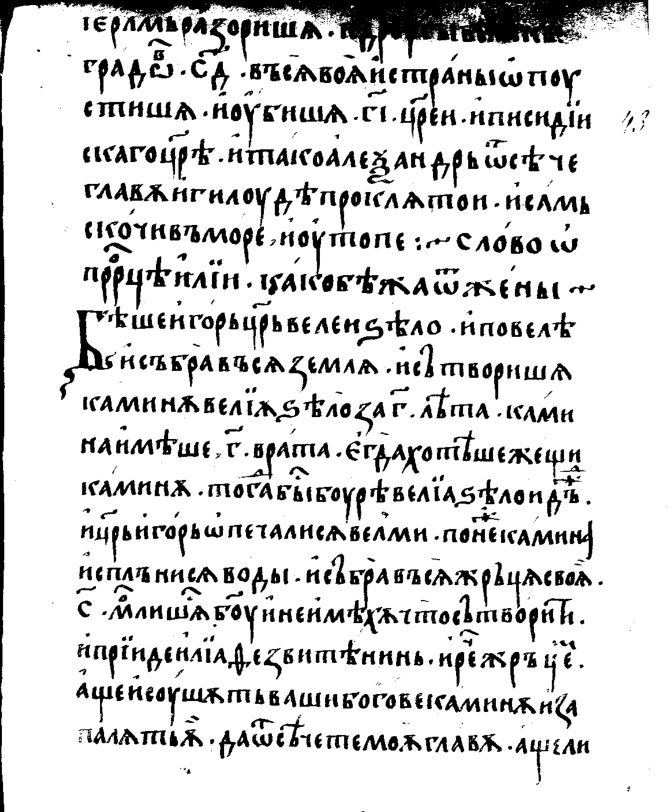 іерⷭ҇лмьразоришѫ · и
градѡⷡ҇ · с҃д · въсѧвоѧ̀ и҆страныѡ҆поу
стишѧ · и҆оу҆бишѧ · г҃і · цр҃еи · и҆писидїи
скагоцр҃ѣ · и҆такоа҆леѯандрьѿсѣче
главѫи҆гилоудѣпроклѧтои · и҆самь
скочивъморе, и҆оу҆топе :~ слово ѡ҆
прⷪ҇рцѣи҆лїи · какобѣжаѿжены ~
Бѣшеи҆горьцр҃ьвелеиѕѣло · и҆повелѣ
и҆събравъсѧземлѧ · и҆сътворишѧ
каминѫвелїѧѕѣлозаг҃ · лѣта · ками
наи҆мѣше, г҃ · врата · є҆гдахотѣшежещи
каминѫ · тогⷣабы́боурѣвелїаѕѣло
и҆цр҃ьи҆горьѡ҆печалисѧвелми · понеⷤкамин
и҆сплънисѧводы · и҆събравъсѧжръцѧсвоѧ̀ ·
с҃ · млⷪ҇лишѧбг҃оуи҆неи҆мѣхѫчтосътворити ·
и҆прїидеи҆лїаѳезвитѣнинь · и҆реⷱ҇жръцеⷨ ·
а҆щеи҆соушѫтьвашибоговекаминѫиза
палѧтьѫ̀ · даѿсѣчетемоѫглавѫ · а҆щели